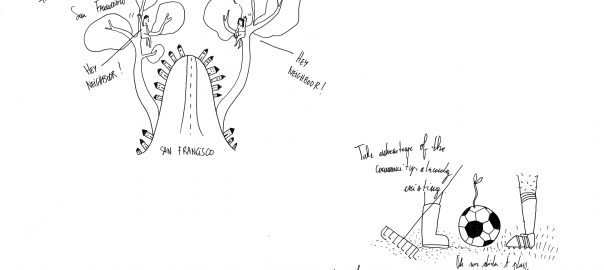 San Francisco
HEY
NEIGHBOOR!
HEY
NEIGHBOOR!
SAN FRANCISCO
Take advantage of the
community already
existing